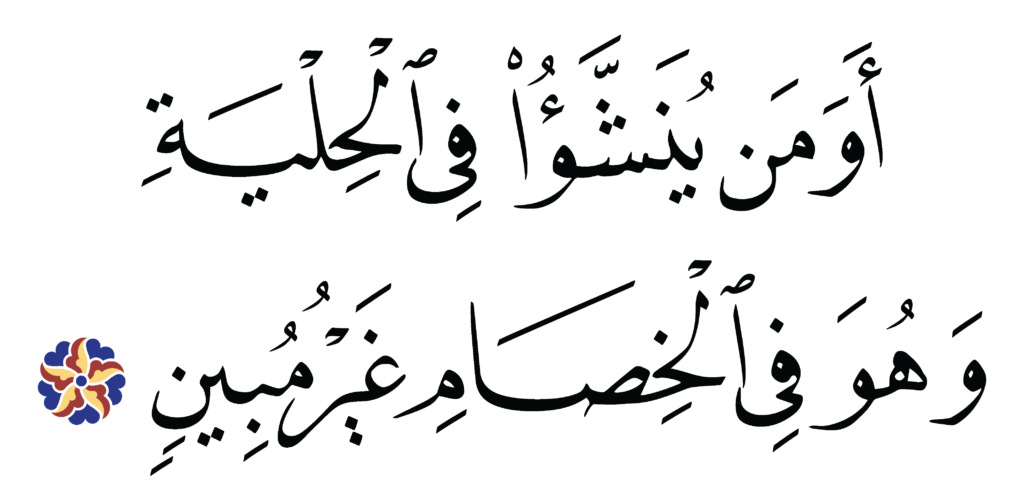 أَوَمَن يُنَشَّؤُا۟ فِى ٱلْحِلْيَةِ
وَهُوَ فِى ٱلْخِصَامِ غَيْرُ مُبِينٍ